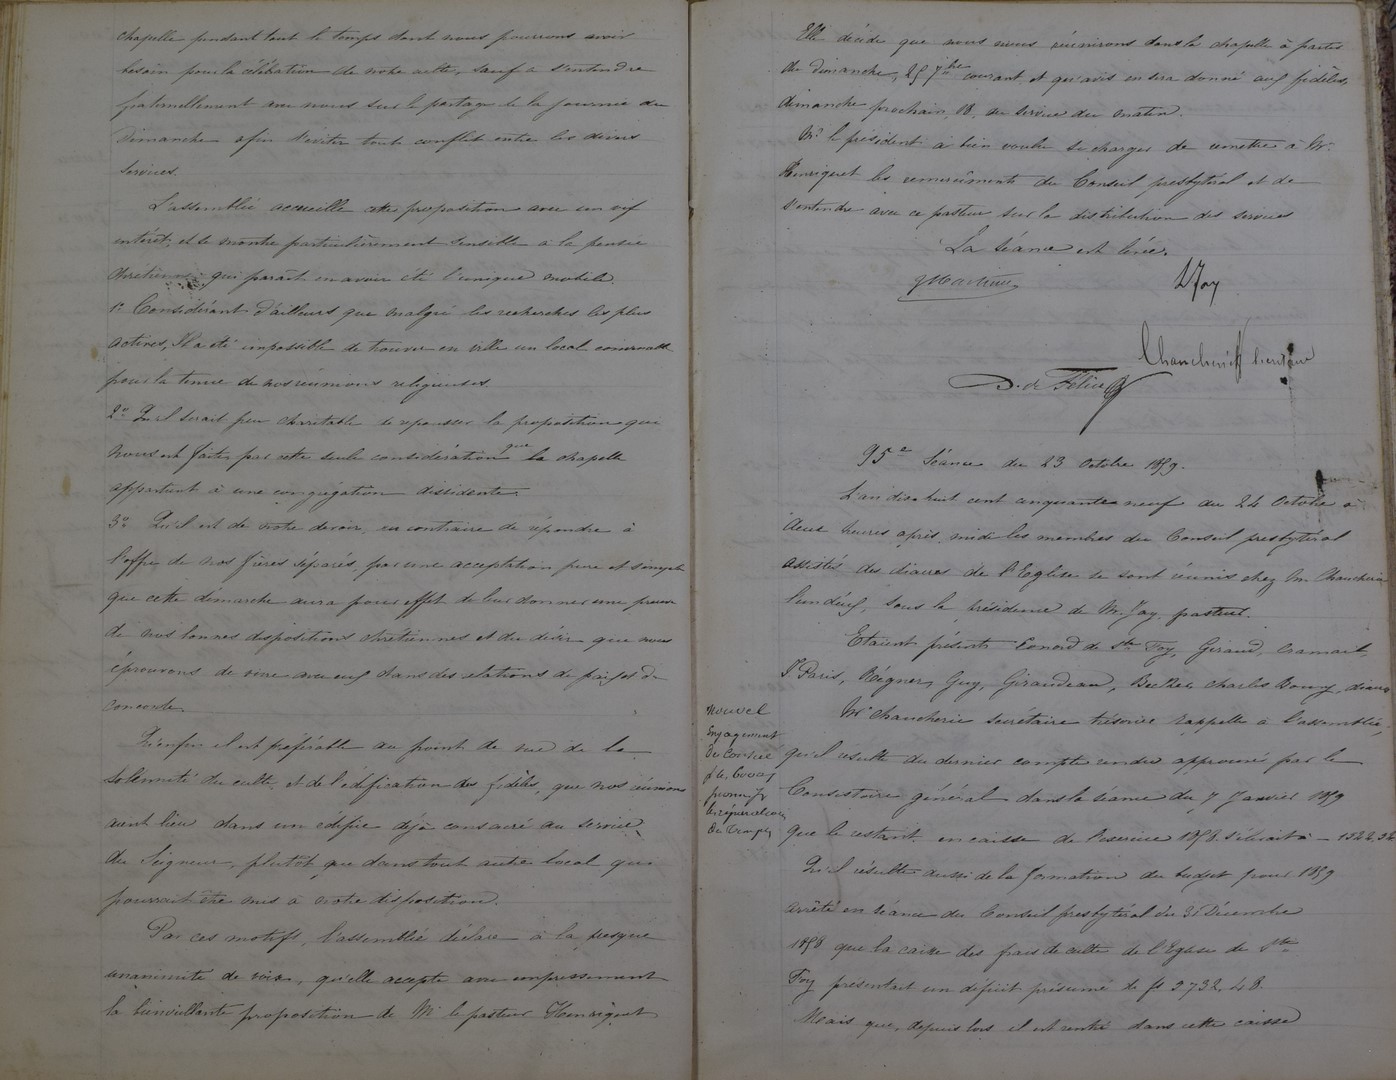 chapelle pendant tout le temps dont nous pourrons avoir
besoin pour la célébration de notre culte, sauf à s'entendre
fraternellement avec nous sur le partage de la journée du
Dimanche afin d'éviter tout conflit entre les divers
services.
L'assemblée accueille cette proposition avec un vif
intérêt, et se montre particulièrement sensible à la pensée
chrétienne qui parait en avoir été l'unique mobile.
1° Considérant d'ailleurs que malgré les recherches les plus
actives, Il a été impossible de trouver en ville un local convenable
pour la tenue de nos réunions religieuses.
2° Qu'il serait peu charitable de repousser la proposition qui
nous est faite, par cette seule considération que la chapelle
appartient à une congrégation dissidente.
3° Qu'il est de notre devoir, au contraire de répondre à
l'offre de nos frères séparés, par une acceptation pure et simple
que cette démarche aura pour effet de leur donner une preuve
de nos bonnes dispositions chrétiennes et du désir que nous
éprouvons de vivre avec eux dans des relations de paix et de
concorde.
Qu'enfin il est préférable au point de vue de la
solennité du culte, et de l'édification des fidèles, que nos réunions
aient lieu dans un édifice déjà consacré au service
du Seigneur, plutôt que dans tout autre local qui
pourrait être mis à notre disposition.
Par ces motifs, l'assemblée déclare à la presque
unanimité de voix, qu'elle accepte avec empressement
la bienveillante proposition de Mr le pasteur Henriquet
Elle décide que nous nous réunirons dans la chapelle à partir
du dimanche, 25 7bre courant et qu'avis en sera donné aux fidèles,
dimanche prochain, 18, au service du matin.
Mr le président a bien voulu se charger de remettre à Mr
Henriquet les remerciments du Conseil presbytéral et de
s'entendre avec ce pasteur sur la distribution des services
La séance est levée.
Martineu
L Jay
Chaucherie secrétaire
D. de Félice
95e Séance du 23 Octobre 1859.
L'an dix huit cent cinquante neuf du 24 Octobre à
deux heures après midi les membres du Conseil presbytéral
assistés des diacres de l'Eglise se sont réunis chez M. Chaucherie
l'un d'eux, sous la présidence de M. Jay, pasteur.
Etaient présents de Ste Foy, Giraud, Cramait,
Paris, Régner, Guy, Giraudeau, Becker, Charles diacres
Mr Chaucherie secrétaire trésorier rappelle à l'assemblée,
Nouvel
engagement
du Conseil
pour
la réparation
du Temple
qu'il résulte du dernier compte rendu approuvé par le
Consistoire général dans la séance du 7 Janvier 1859
que le restant en caisse de l'exercice 1858 s'élevait à — 1522.32
Qu'il résulte aussi de la formation du budget pour 1859
arrêté en séance du Conseil presbytéral du 31 Décembre
1858 que la caisse des frais de culte de l'Eglise de Ste
Foy présentait un déficit présumé de fs 3732.48.
Mais que, depuis lors il est rentré dans cette caisse